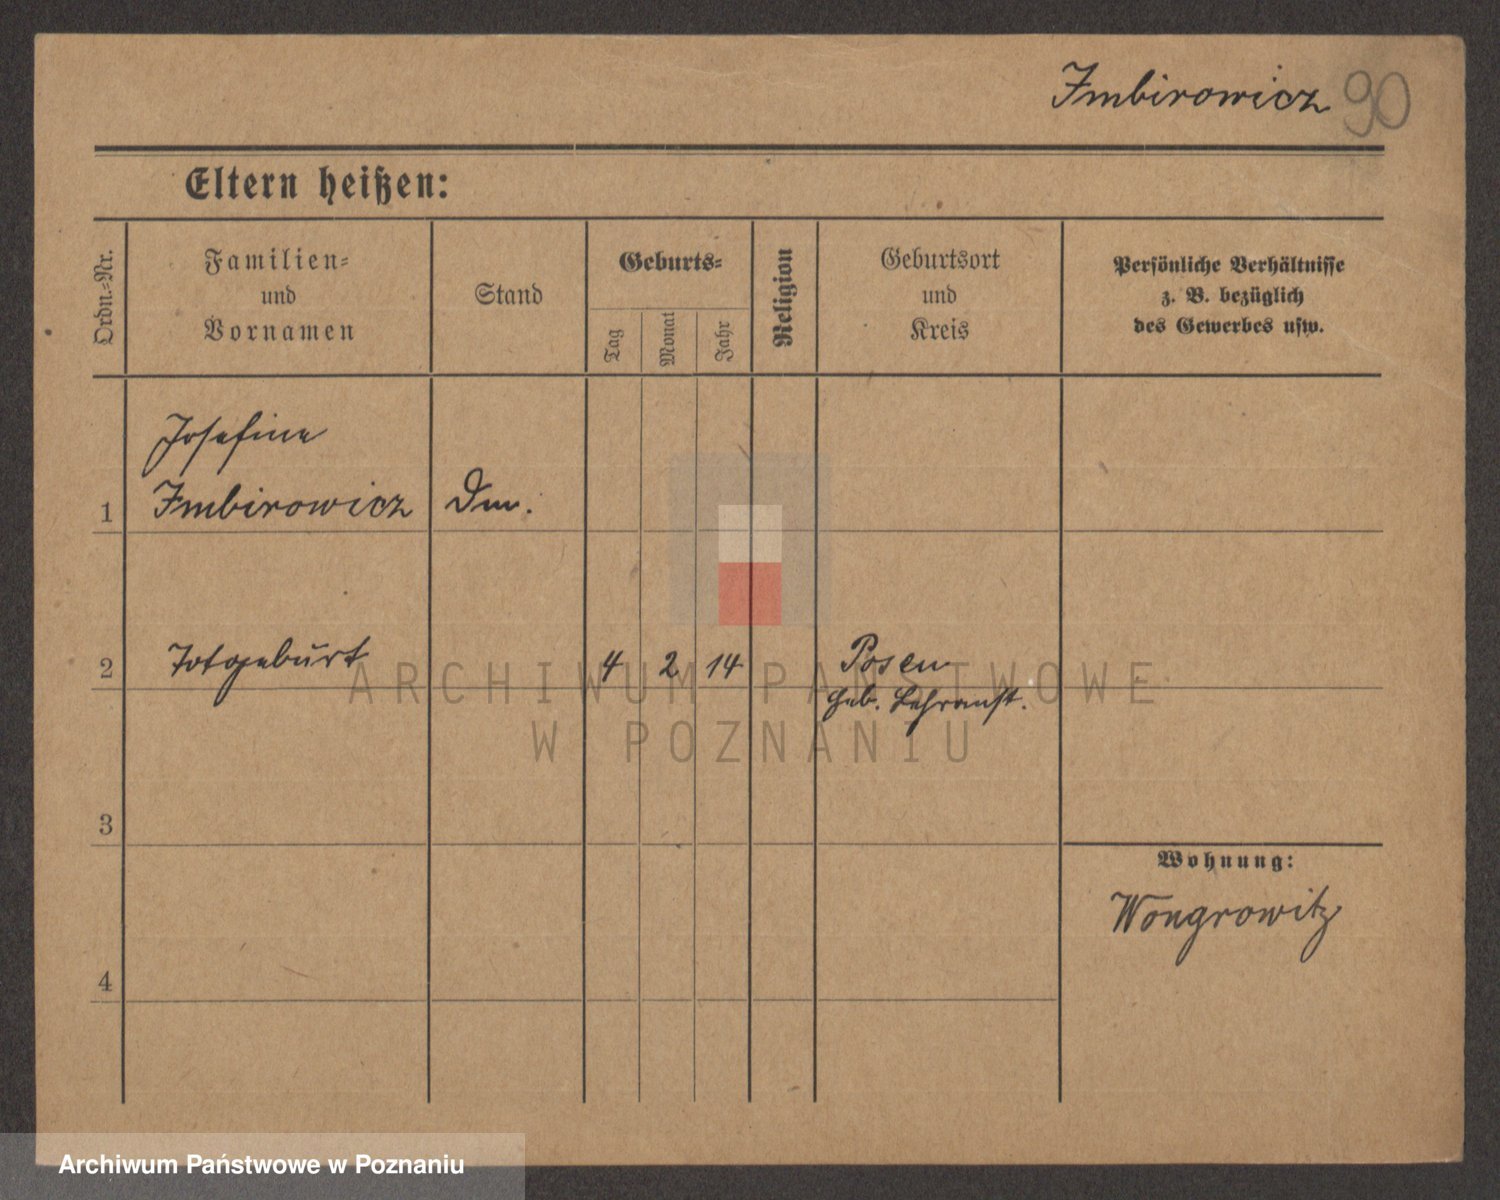 Imbirowicz 90
Eltern heißen:
Ordn.-Nr.
Familien-
und
Vornamen
Stand
Geburts-
Tag
Monat
Jahr
Religion
Geburtsort
und
Kreis
Persönliche Verhältnisse
z. B. bezüglich
des Gewerbes usw.
Josefine
1 Imbirowicz
2 Totgeburt 4 2 14 Posen
Heb. Lehranst.
ARCHIWUM PAŃSTWOWE
W POZNANIU
3
Wohnung:
Wongrowitz
4
Archiwum Państwowe w Poznaniu